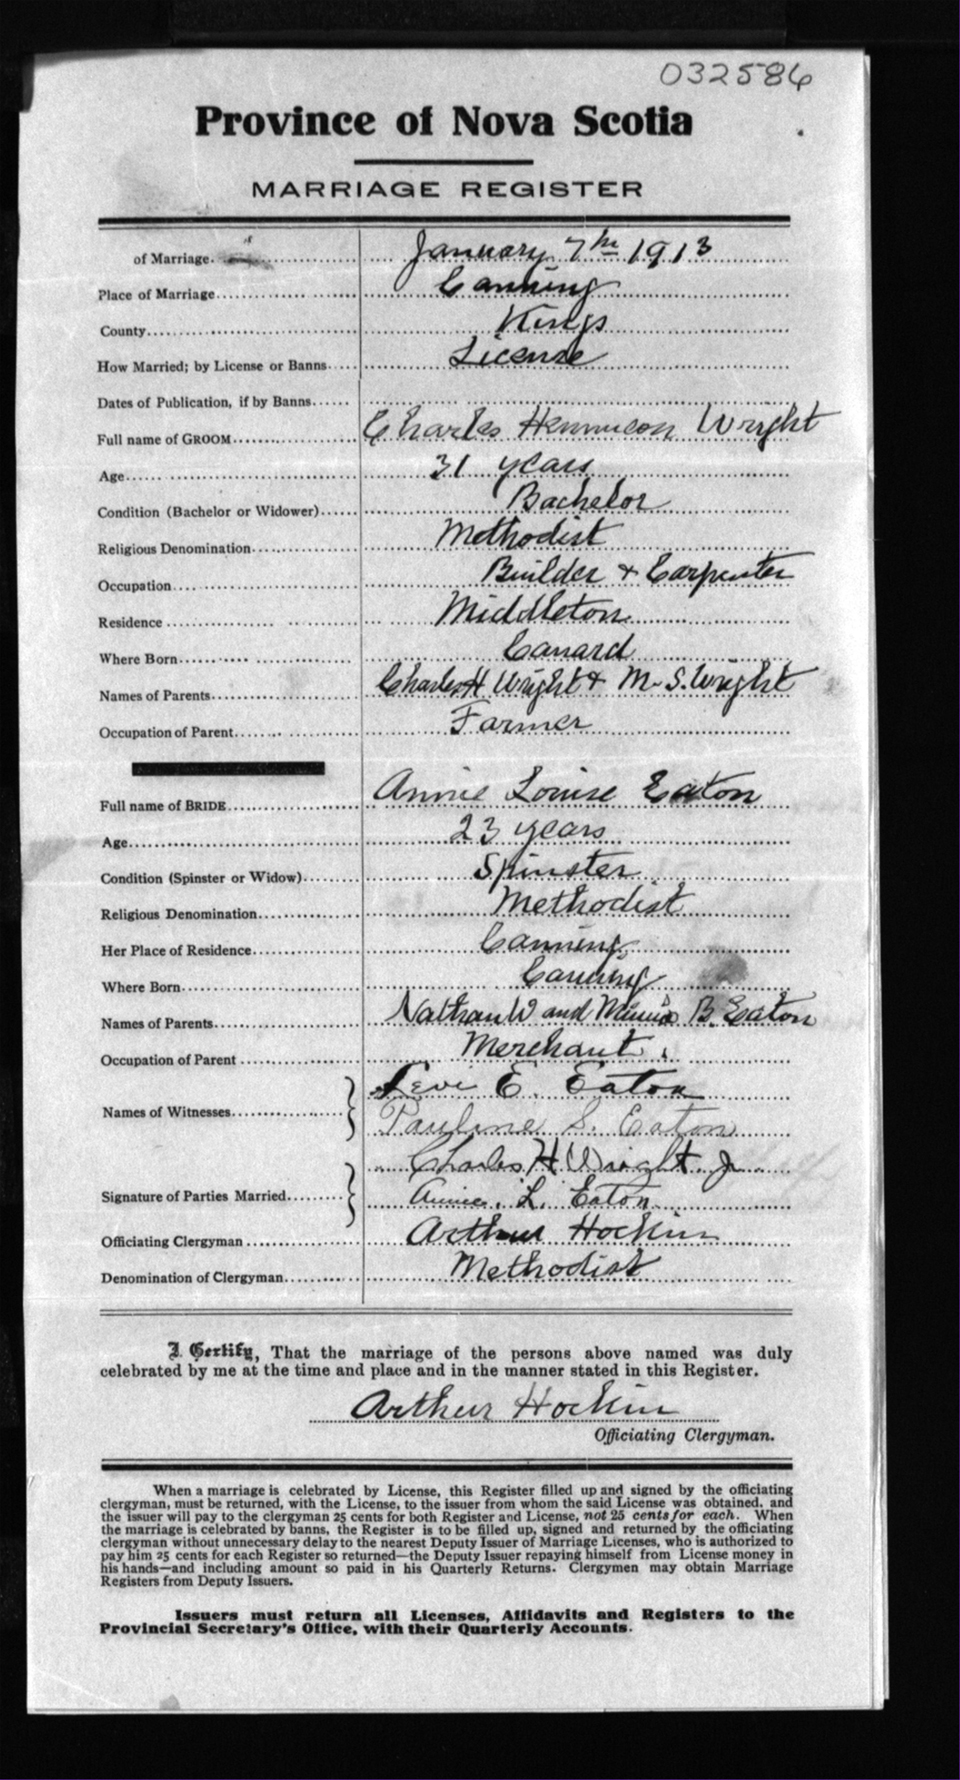 032586
Province of Nova Scotia
MARRIAGE REGISTER
of Marriage January 7th 1913
Place of Marriage Canning
County Kings
How Married; by License or Banns License
Dates of Publication, if by Banns
Full name of GROOM Charles Wright
Age 31 years
Condition (Bachelor or Widower) Bachelor
Religious Denomination Methodist
Occupation Builder & Carpenter
Residence Middleton
Where Born Canard
Names of Parents Charles H Wright & M. S. Wright
Occupation of Parent Farmer
Full name of BRIDE Annie Louise Eaton
Age 23 years
Condition (Spinster or Widow) Spinster
Religious Denomination Methodist
Her Place of Residence Canning
Where Born Canning
Names of Parents Nathan W and Minnie B. Eaton
Occupation of Parent Merchant
Names of Witnesses Levi E. Eaton
Pauline S. Eaton
Signature of Parties Married Charles H Wright Jr
Annie L. Eaton
Officiating Clergyman Arthur Hockin
Denomination of Clergyman Methodist
I Certify, That the marriage of the persons above named was duly
celebrated by me at the time and place and in the manner stated in this Register.
Arthur Hockin
Officiating Clergyman.
When a marriage is celebrated by License, this Register filled up and signed by the officiating
clergyman, must be returned, with the License, to the issuer from whom the said License was obtained, and
the issuer will pay to the clergyman 25 cents for both Register and License, not 25 cents for each. When
the marriage is celebrated by banns, the Register is to be filled up, signed and returned by the officiating
clergyman without unnecessary delay to the nearest Deputy Issuer of Marriage Licenses, who is authorized to
pay him 25 cents for each Register so returned—the Deputy Issuer repaying himself from License money in
his hands—and including amount so paid in his Quarterly Returns. Clergymen may obtain Marriage
Registers from Deputy Issuers.
Issuers must return all Licenses, Affidavits and Registers to the
Provincial Secretary's Office, with their Quarterly Accounts.